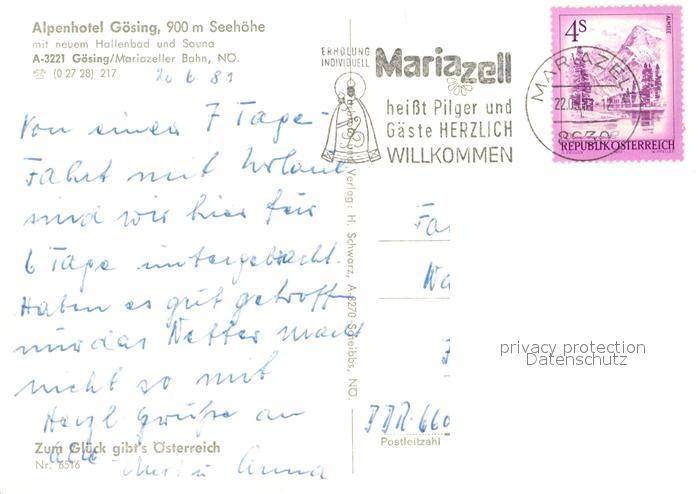 Alpenhotel Gösing, 900 m Seehöhe
mit neuem Hallenbad und Sauna
A-3221 Gösing/Mariazeller Bahn, NÖ.
☏ (0 27 28) 217
20 6 81
Von einer 7 Tage-
Fahrt mit Urlaub
sind wir hier für
6 Tage untergebracht.
Haben es gut getroffen
nur das Wetter macht
nicht so mit
Herzl Grüße an
alle
Anna
Zum Glück gibt's Österreich
Nr. 6516
Verlag: H. Schwarz, A-3270 Scheibbs, NÖ.
ERHOLUNG
INDIVIDUELL
Mariazell
heißt Pilger und
Gäste HERZLICH
WILLKOMMEN
MARIAZELL
8630
4S
ALMSEE
REPUBLIK ÖSTERREICH
Fa
Wa
DDR-660
Postleitzahl
privacy protection
Datenschutz